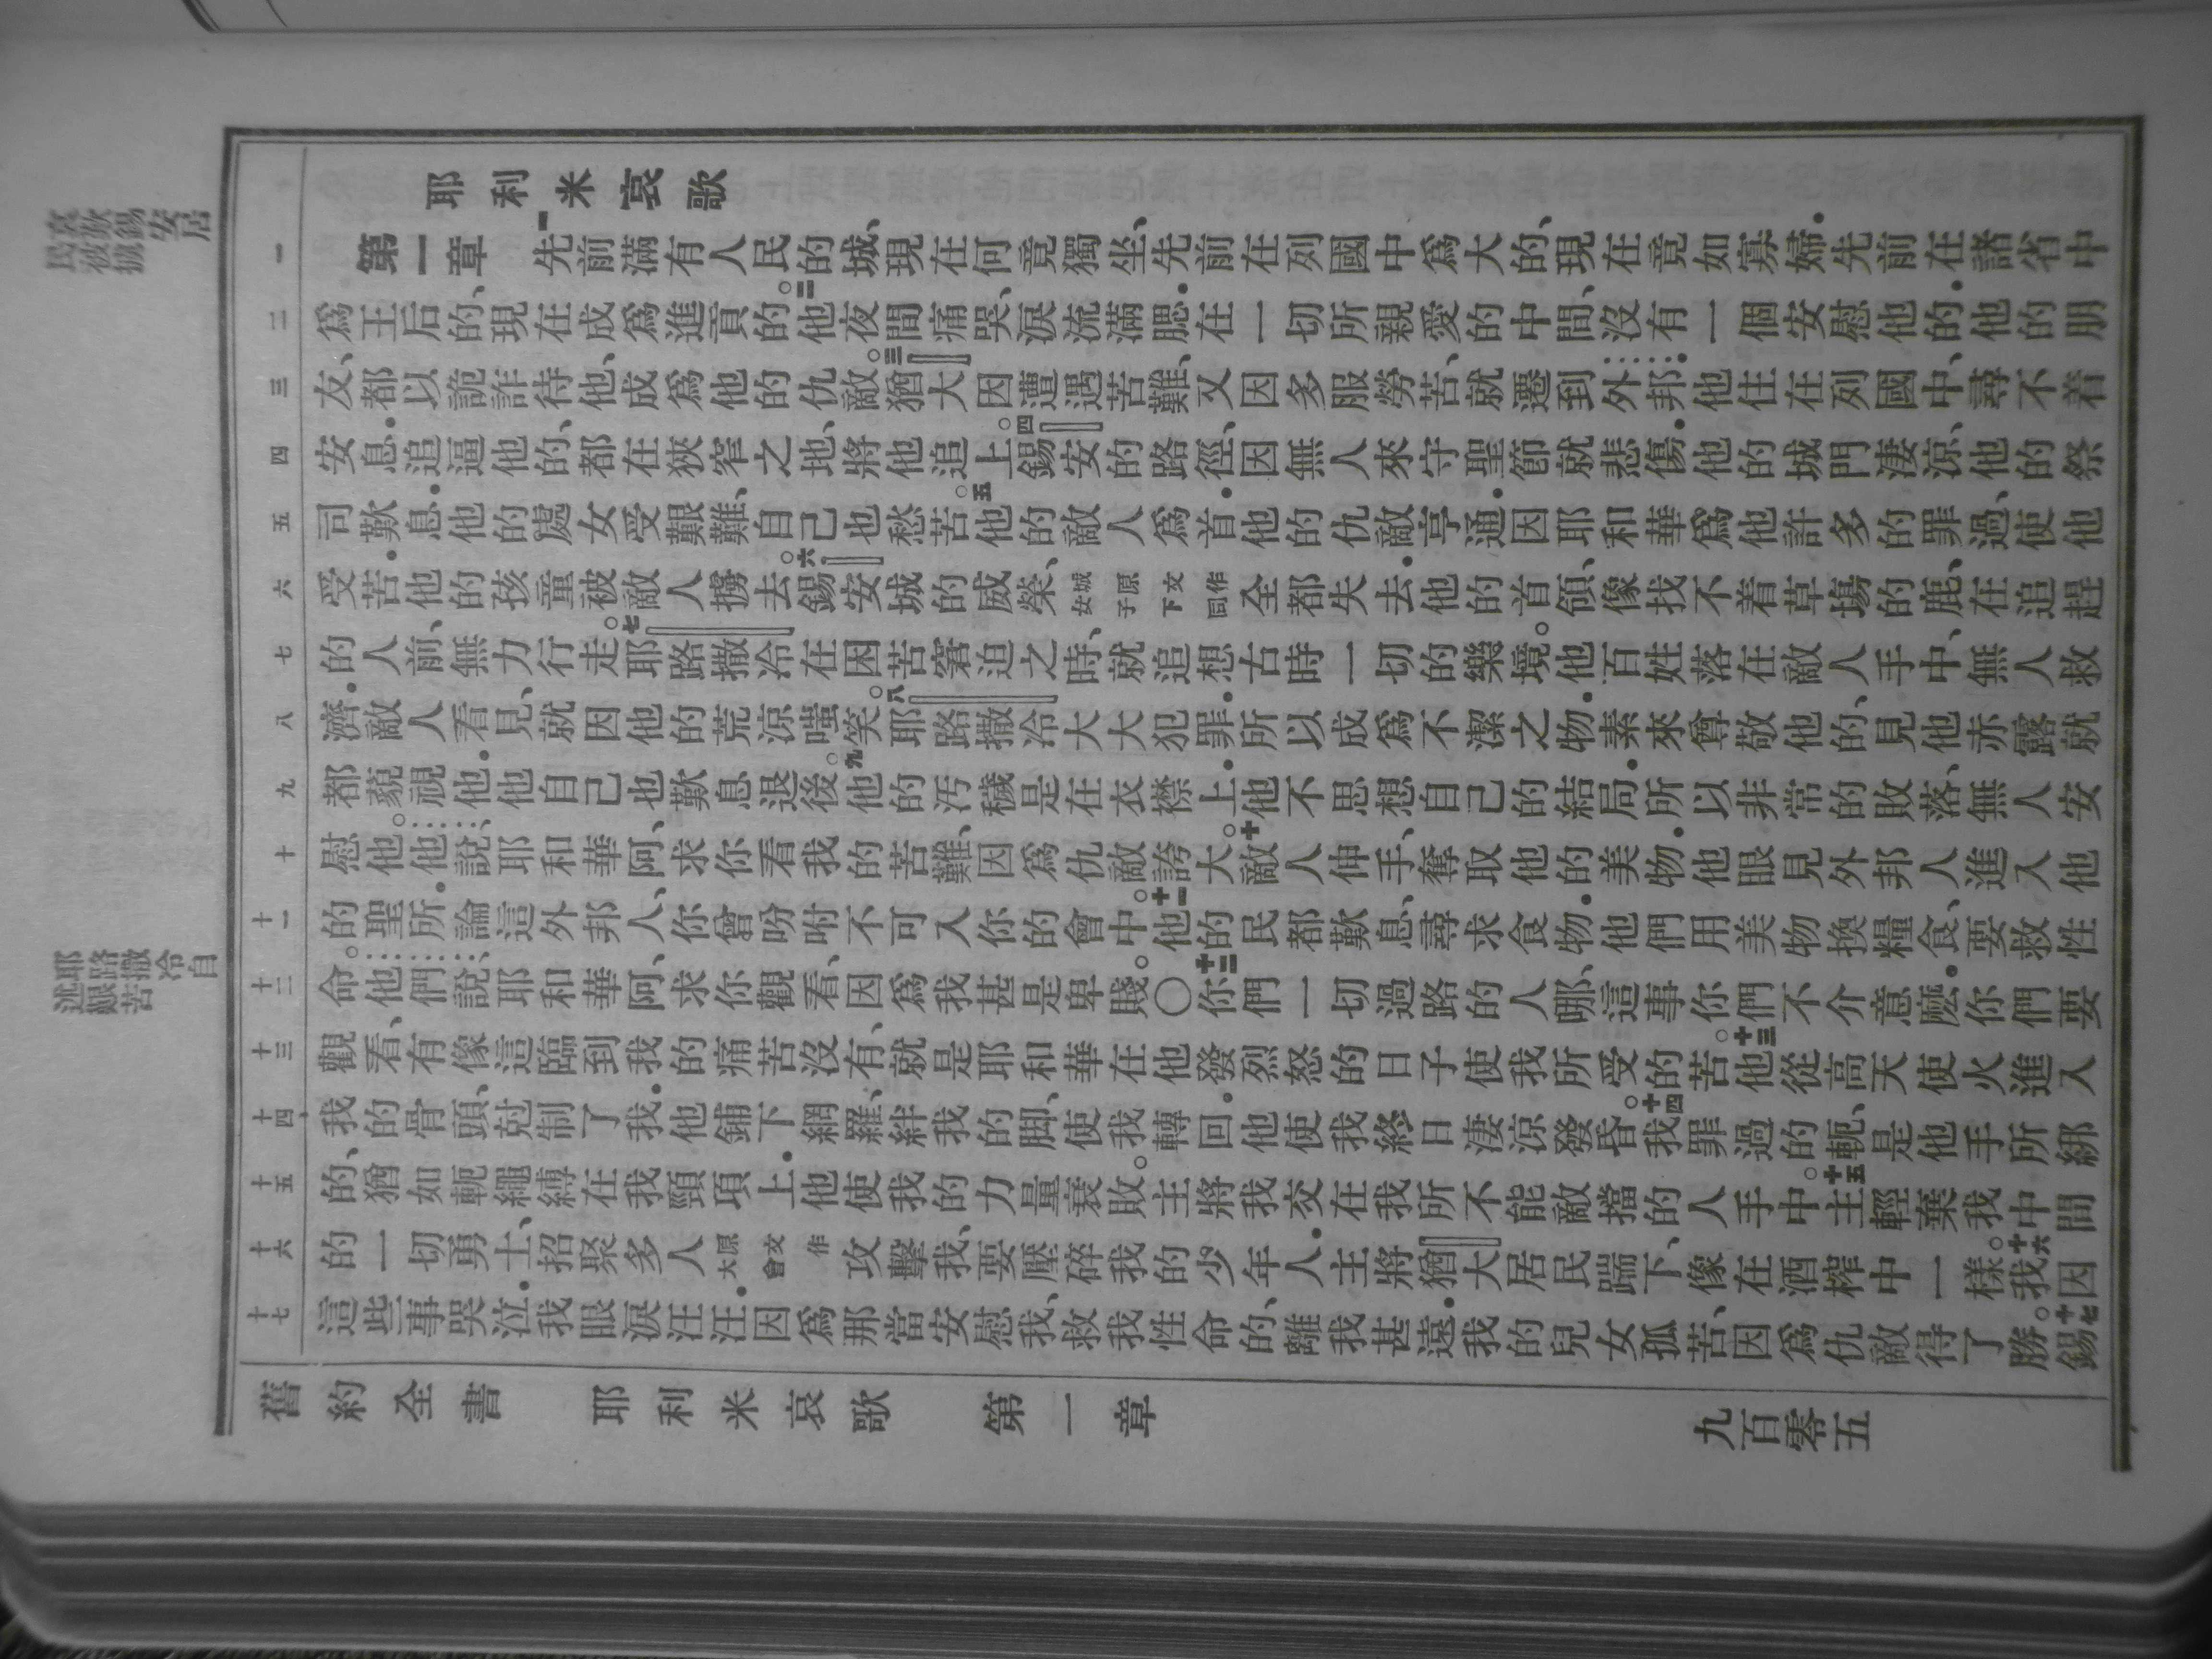 耶利米哀歌
第一章 一先前滿有人民的城、現在何竟獨坐、先前在列國中爲大的、現在竟如寡婦．先前在諸省中
爲王后的、現在成爲進貢的。二他夜間痛哭、淚流滿腮．在一切所親愛的中間、沒有一個安慰他的．他的朋
友、都以詭詐待他、成爲他的仇敵。三猶大因遭遇苦難、又因多服勞苦、就遷到外邦．他住在列國中、尋不着
安息．追逼他的、都在狹窄之地、將他追上。四錫安的路徑、因無人來守聖節就悲傷．他的城門淒涼、他的祭
司歎息．他的處女受艱難、自己也愁苦。五他的敵人爲首、他的仇敵亨通．因耶和華爲他許多的罪過、使他
受苦．他的孩童被敵人擄去。六錫安城的威榮、城原文作女子下同全都失去．他的首領、像找不着草場的鹿、在追趕
的人前、無力行走。七耶路撒冷在困苦窘迫之時、就追想古時一切的樂境。他百姓落在敵人手中、無人救
濟．敵人看見、就因他的荒涼嗤笑。八耶路撒冷大大犯罪．所以成爲不潔之物．素來尊敬他的、見他赤露就
都藐視他．他自己也歎息退後。九他的汚穢是在衣襟上．他不思想自己的結局．所以非常的敗落、無人安
慰他。他說、耶和華阿、求你看我的苦難、因爲仇敵誇大。十敵人伸手、奪取他的美物．他眼見外邦人進入他
的聖所．論這外邦人、你曾吩咐不可入你的會中。十一他的民都歎息、尋求食物．他們用美物換糧食、要救性
命。他們說、耶和華阿、求你觀看、因爲我甚是卑賤。〇十二你們一切過路的人哪、這事你們不介意麼．你們要
觀看、有像這臨到我的痛苦沒有、就是耶和華在他發烈怒的日子使我所受的苦。十三他從高天使火進入
我的骨頭、尅制了我．他鋪下網羅、絆我的脚、使我轉回．他使我終日淒涼發昏。十四我罪過的軛、是他手所綁
的、猶如軛繩縛在我頸項上．他使我的力量衰敗。主將我交在我所不能敵擋的人手中。十五主輕棄我中間
的一切勇士、招聚多人原文作大會攻擊我、要壓碎我的少年人．主將猶大居民踹下、像在酒榨中一樣。十六我因
這些事哭泣．我眼淚汪汪．因爲那當安慰我、救我性命的、離我甚遠．我的兒女孤苦、因爲仇敵得了勝。十七錫
一
二
三
四
五
六
七
八
九
十
十一
十二
十三
十四
十五
十六
十七
哀歎錫安居
民被擄
耶路撒冷自
述艱苦
舊約全書 耶利米哀歌 第一章 九百零五